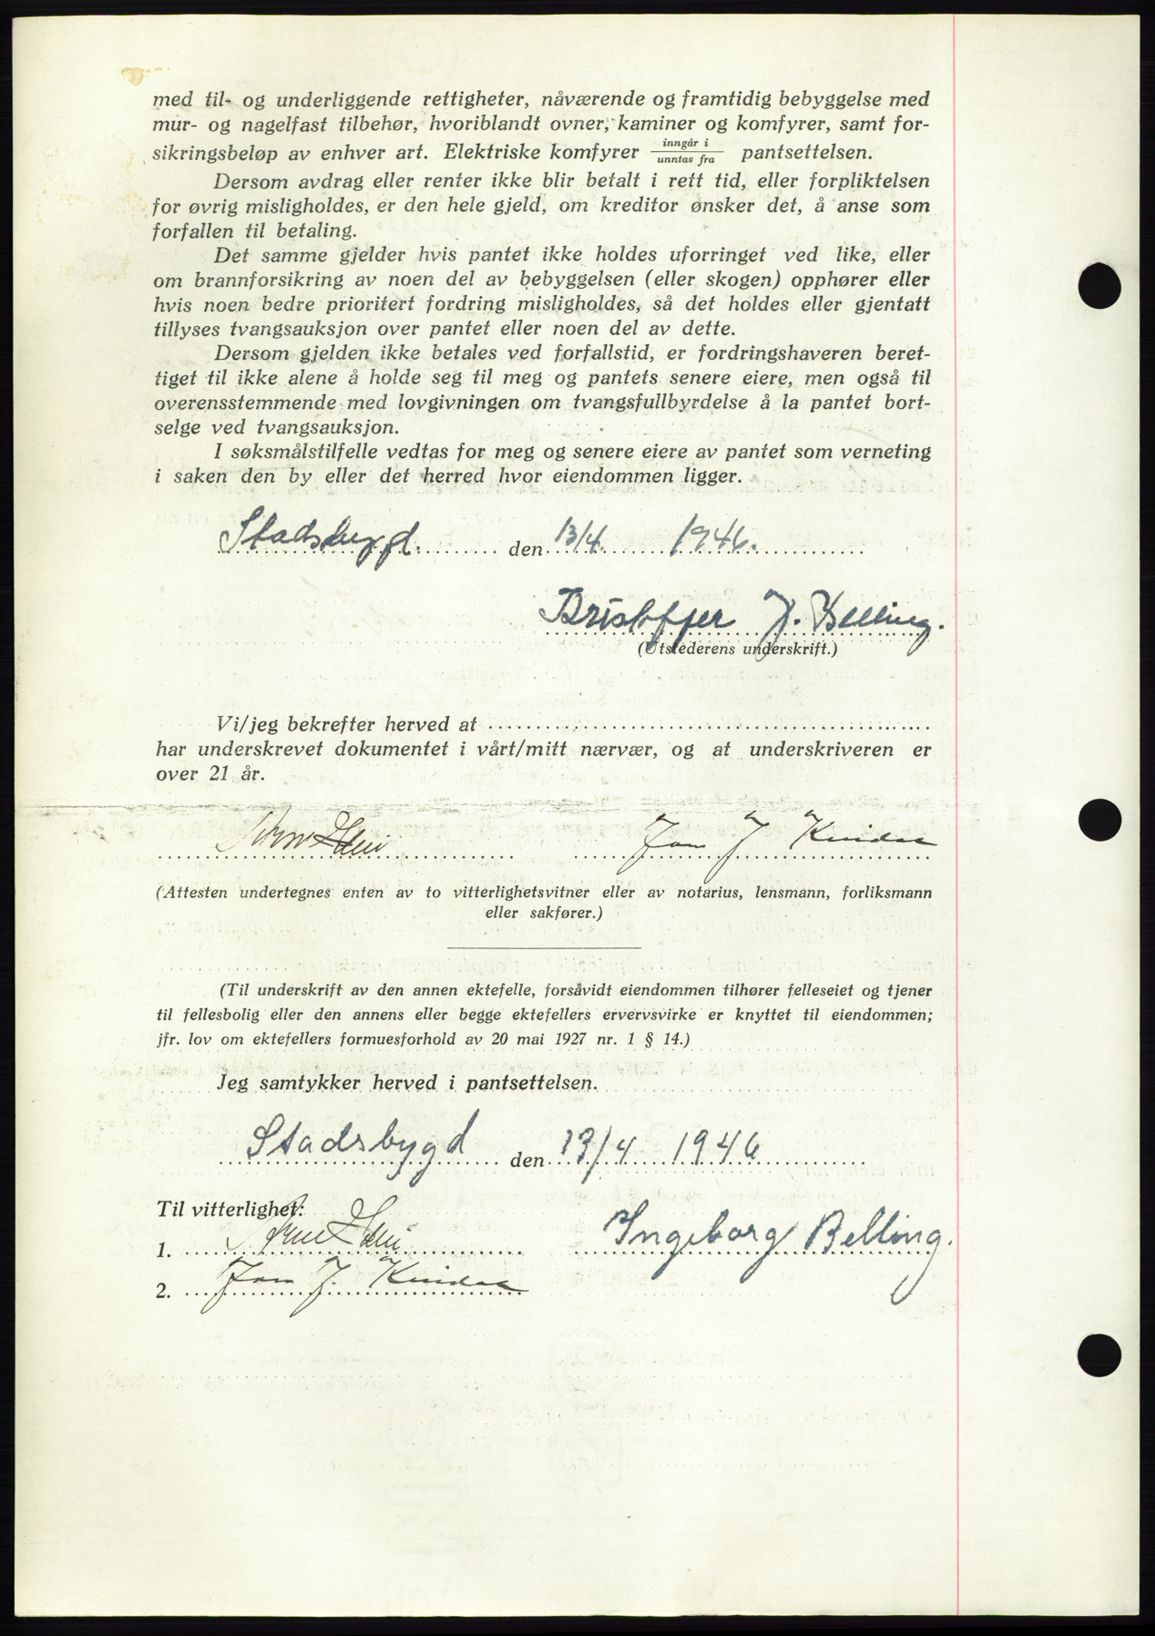 med til- og underliggende rettigheter, nåværende og framtidig bebyggelse med
mur- og nagelfast tilbehør, hvoriblandt ovner, kaminer og komfyrer, samt for-
sikringsbeløp av enhver art. Elektriske komfyrer inngår i / unntas fra pantsettelsen.
Dersom avdrag eller renter ikke blir betalt i rett tid, eller forpliktelsen
for øvrig misligholdes, er den hele gjeld, om kreditor ønsker det, å anse som
forfallen til betaling.
Det samme gjelder hvis pantet ikke holdes uforringet ved like, eller
om brannforsikring av noen del av bebyggelsen (eller skogen) opphører eller
hvis noen bedre prioritert fordring misligholdes, så det holdes eller gjentatt
tillyses tvangsauksjon over pantet eller noen del av dette.
Dersom gjelden ikke betales ved forfallstid, er fordringshaveren beret-
tiget til ikke alene å holde seg til meg og pantets senere eiere, men også til
overensstemmende med lovgivningen om tvangsfullbyrdelse å la pantet bort-
selge ved tvangsauksjon.
I søksmålstilfelle vedtas for meg og senere eiere av pantet som verneting
i saken den by eller det herred hvor eiendommen ligger.
Stadsbygd. den 13/4. 1946.
Kristoffer J. Belling.
(Utstederens underskrift.)
Vi/jeg bekrefter herved at
har underskrevet dokumentet i vårt/mitt nærvær, og at underskriveren er
over 21 år.
Jon J
(Attesten undertegnes enten av to vitterlighetsvitner eller av notarius, lensmann, forliksmann
eller sakfører.)
(Til underskrift av den annen ektefelle, forsåvidt eiendommen tilhører felleseiet og tjener
til fellesbolig eller den annens eller begge ektefellers ervervsvirke er knyttet til eiendommen;
jfr. lov om ektefellers formuesforhold av 20 mai 1927 nr. 1 § 14.)
Jeg samtykker herved i pantsettelsen.
Stadsbygd den 13/4 1946
Til vitterlighet:
1.
Ingeborg Belling.
2. Jon J.